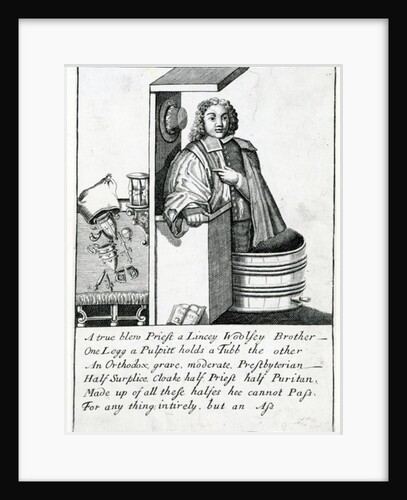 A true blew Priest a Lincey Woolsey Brother
One Legg a Pulpitt holds a Tubb the other
An Orthodox, grave, moderate, Presbyterian
Half Surplice, Cloake half Priest half Puritan,
Made up of all these halfes hee cannot Pass,
For any thing intirely, but an Ass